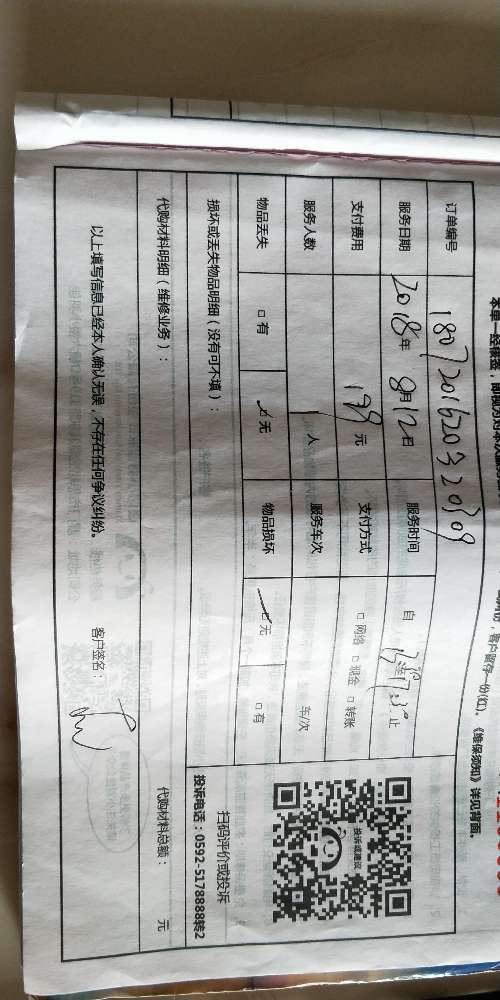 订单编号 1807201620320309
服务日期 2018年 8月12日 服务时间 自 至17:30止
支付费用 199元 支付方式 □ 网络 □ 现金 □ 转账
服务人数 1人 服务车次 车/次
物品丢失 □ 有 □ 无 物品损坏 □ 无 □ 有
投诉或建议
扫码评价或投诉
投诉电话：0592-5178888转2
损坏或丢失物品明细（没有可不填）：
代购材料明细（维修业务）：
代购材料总额： 元
以上填写信息已经本人确认无误，不存在任何争议纠纷。 客户签名：